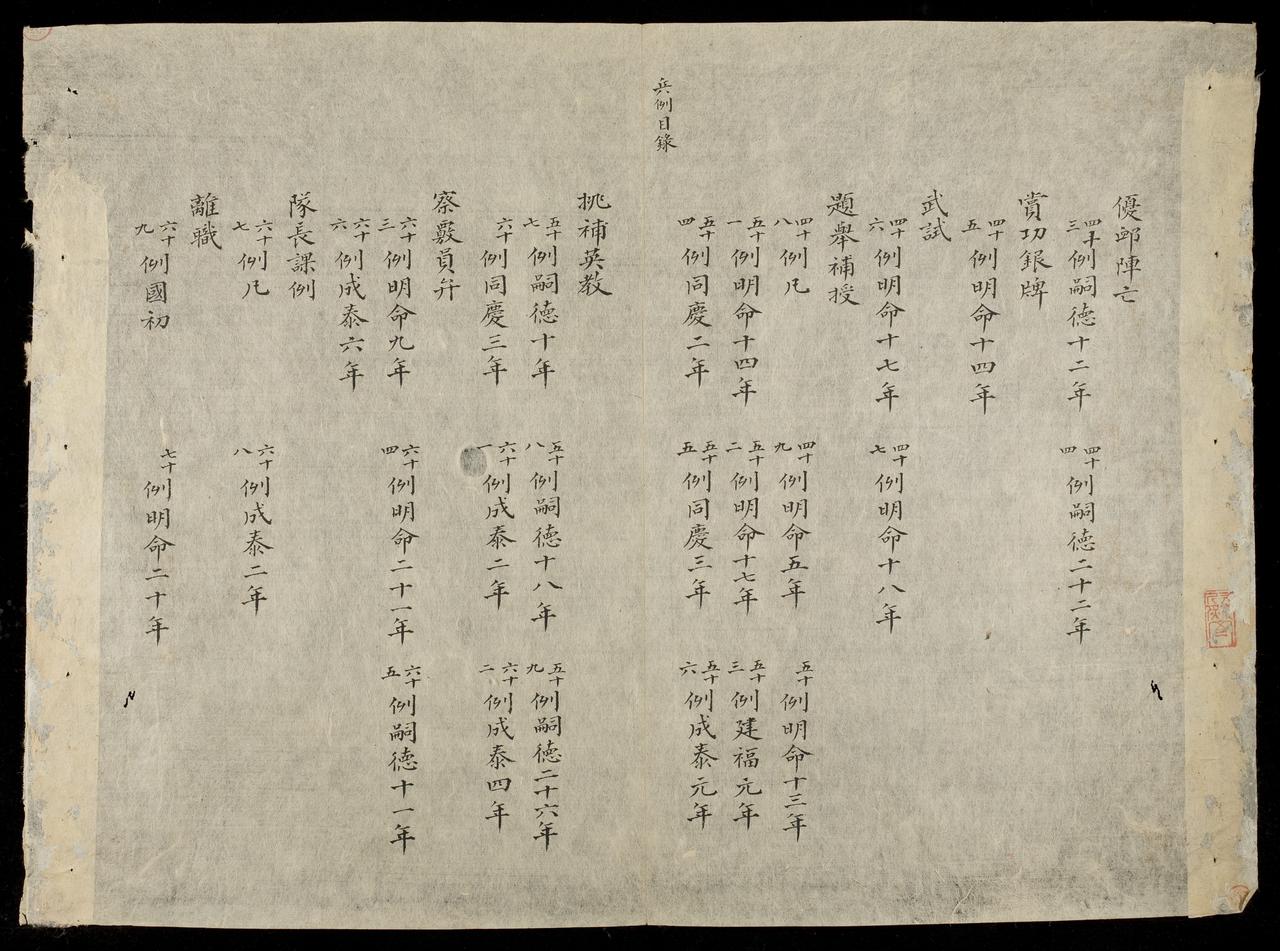 優卹陣亡
四十三例嗣徳十二年 四十四例嗣徳二十二年
賞功銀牌
四十五例明命十四年
武試
四十六例明命十七年 四十七例明命十八年
題舉補授
四十八例凢 四十九例明命五年 五十例明命十三年
五十一例明命十四年 五十二例明命十七年 五十三例建福元年
五十四例同慶二年 五十五例同慶三年 五十六例成泰元年
兵例目錄
挑補英教
五十七例嗣徳十年 五十八例嗣徳十八年 五十九例嗣徳二十六年
六十例同慶三年 六十一例成泰二年 六十二例成泰四年
察覈員弁
六十三例明命九年 六十四例明命二十一年 六十五例嗣徳十一年
六十六例成泰六年
隊長課例
六十七例凢 六十八例成泰二年
離職
六十九例國初 七十例明命二十年